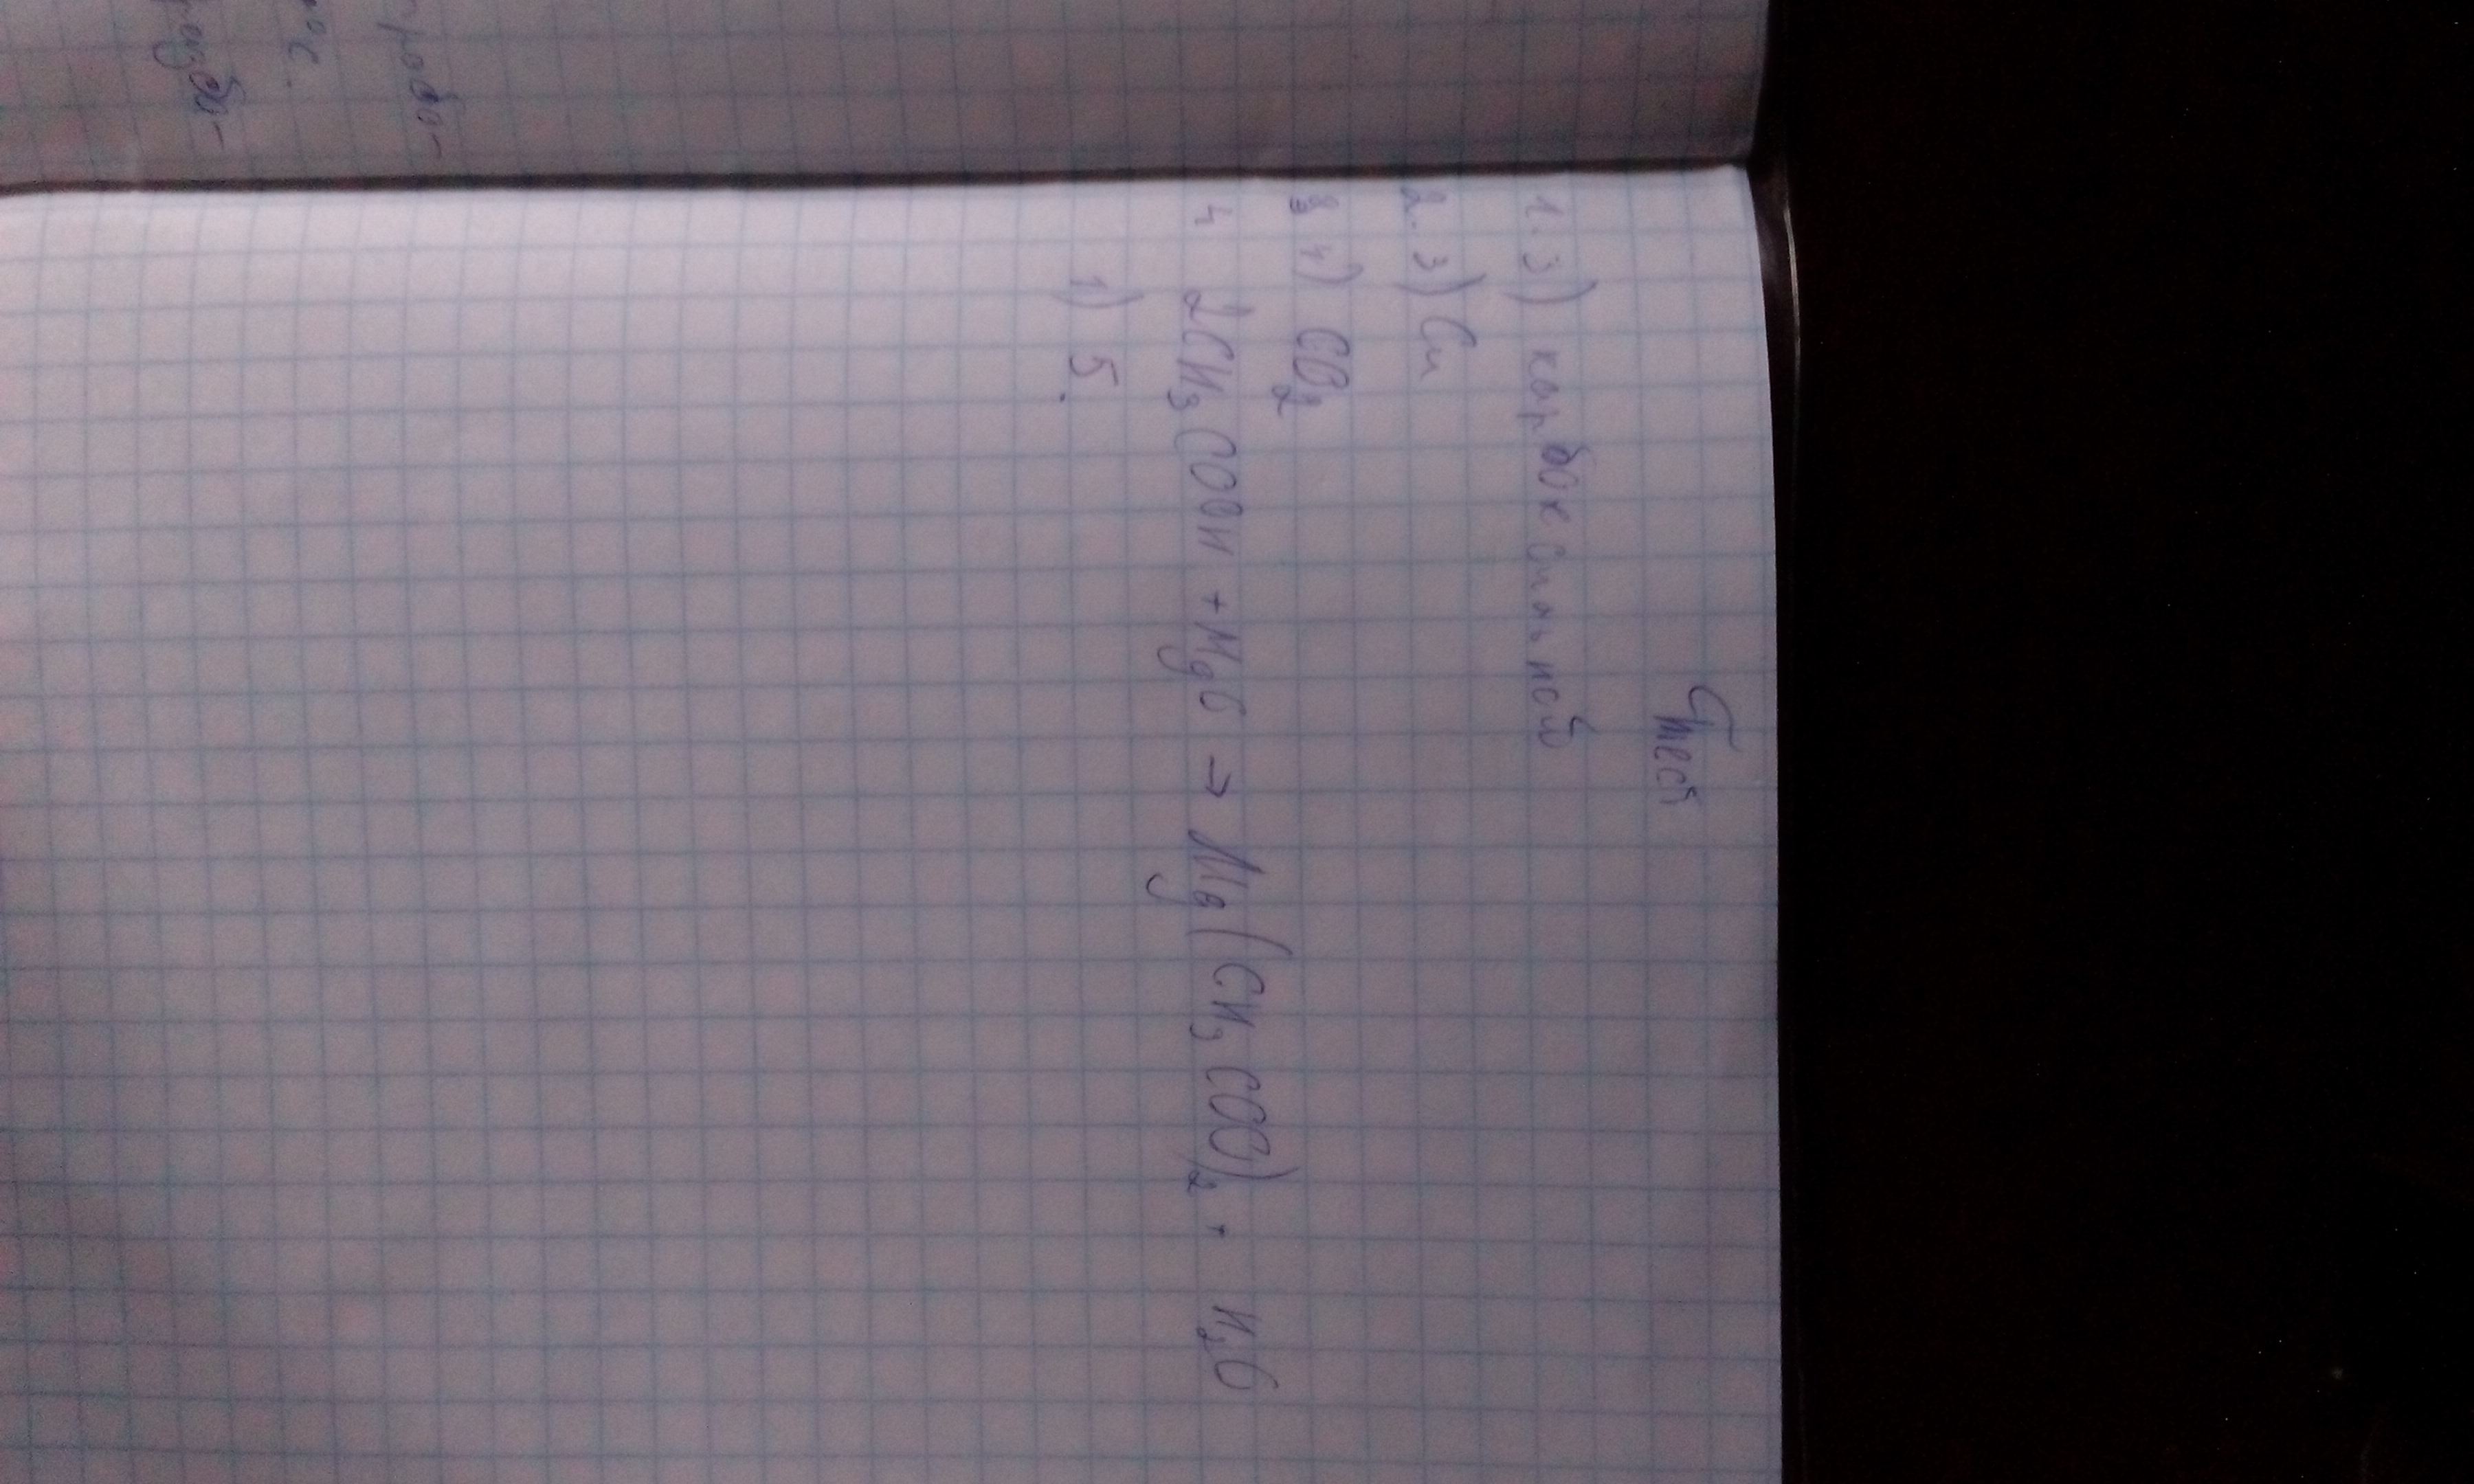 Тест
1. 3) карбоксильной
2. 3) Cu
3 4) CO2
4 2CH3COOH + MgO → Mg(CH3COO)2 + H2O
1) 5.